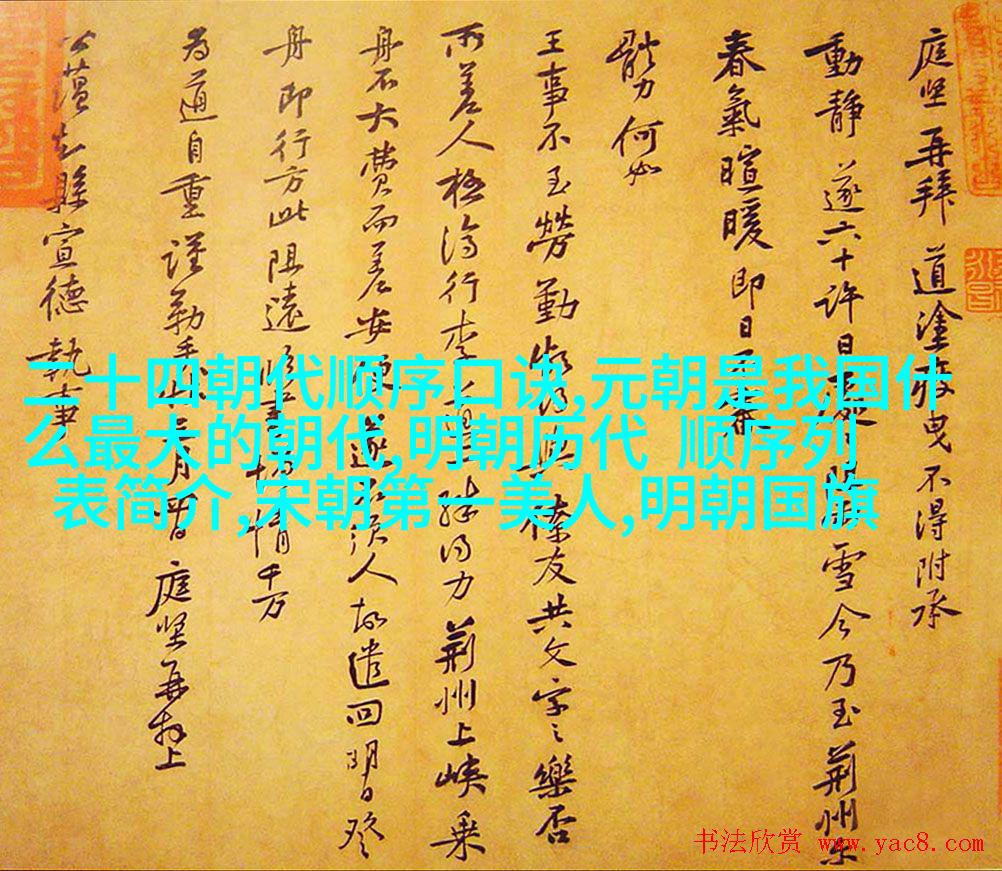 庭坚再拜道塗疲曳不得附承
動靜遂六十許日 雪今乃至荆州
春氣暄暖即日不審
體力何如
王事不至勞勤 僚友共文字之樂否
所差人極濟行李 上峡乘
舟不大費而差安 遂不須人故遣回明日登
舟即行方此阻遠 情千万
為道自重謹勒手 庭坚再拜上
縣宣德執事
二十四朝代顺序口诀,元朝是我国什
么最大的朝代,明朝历代 顺序列
表简介,宋朝第一美人,明朝国旗
书法欣赏 www.yac8.com